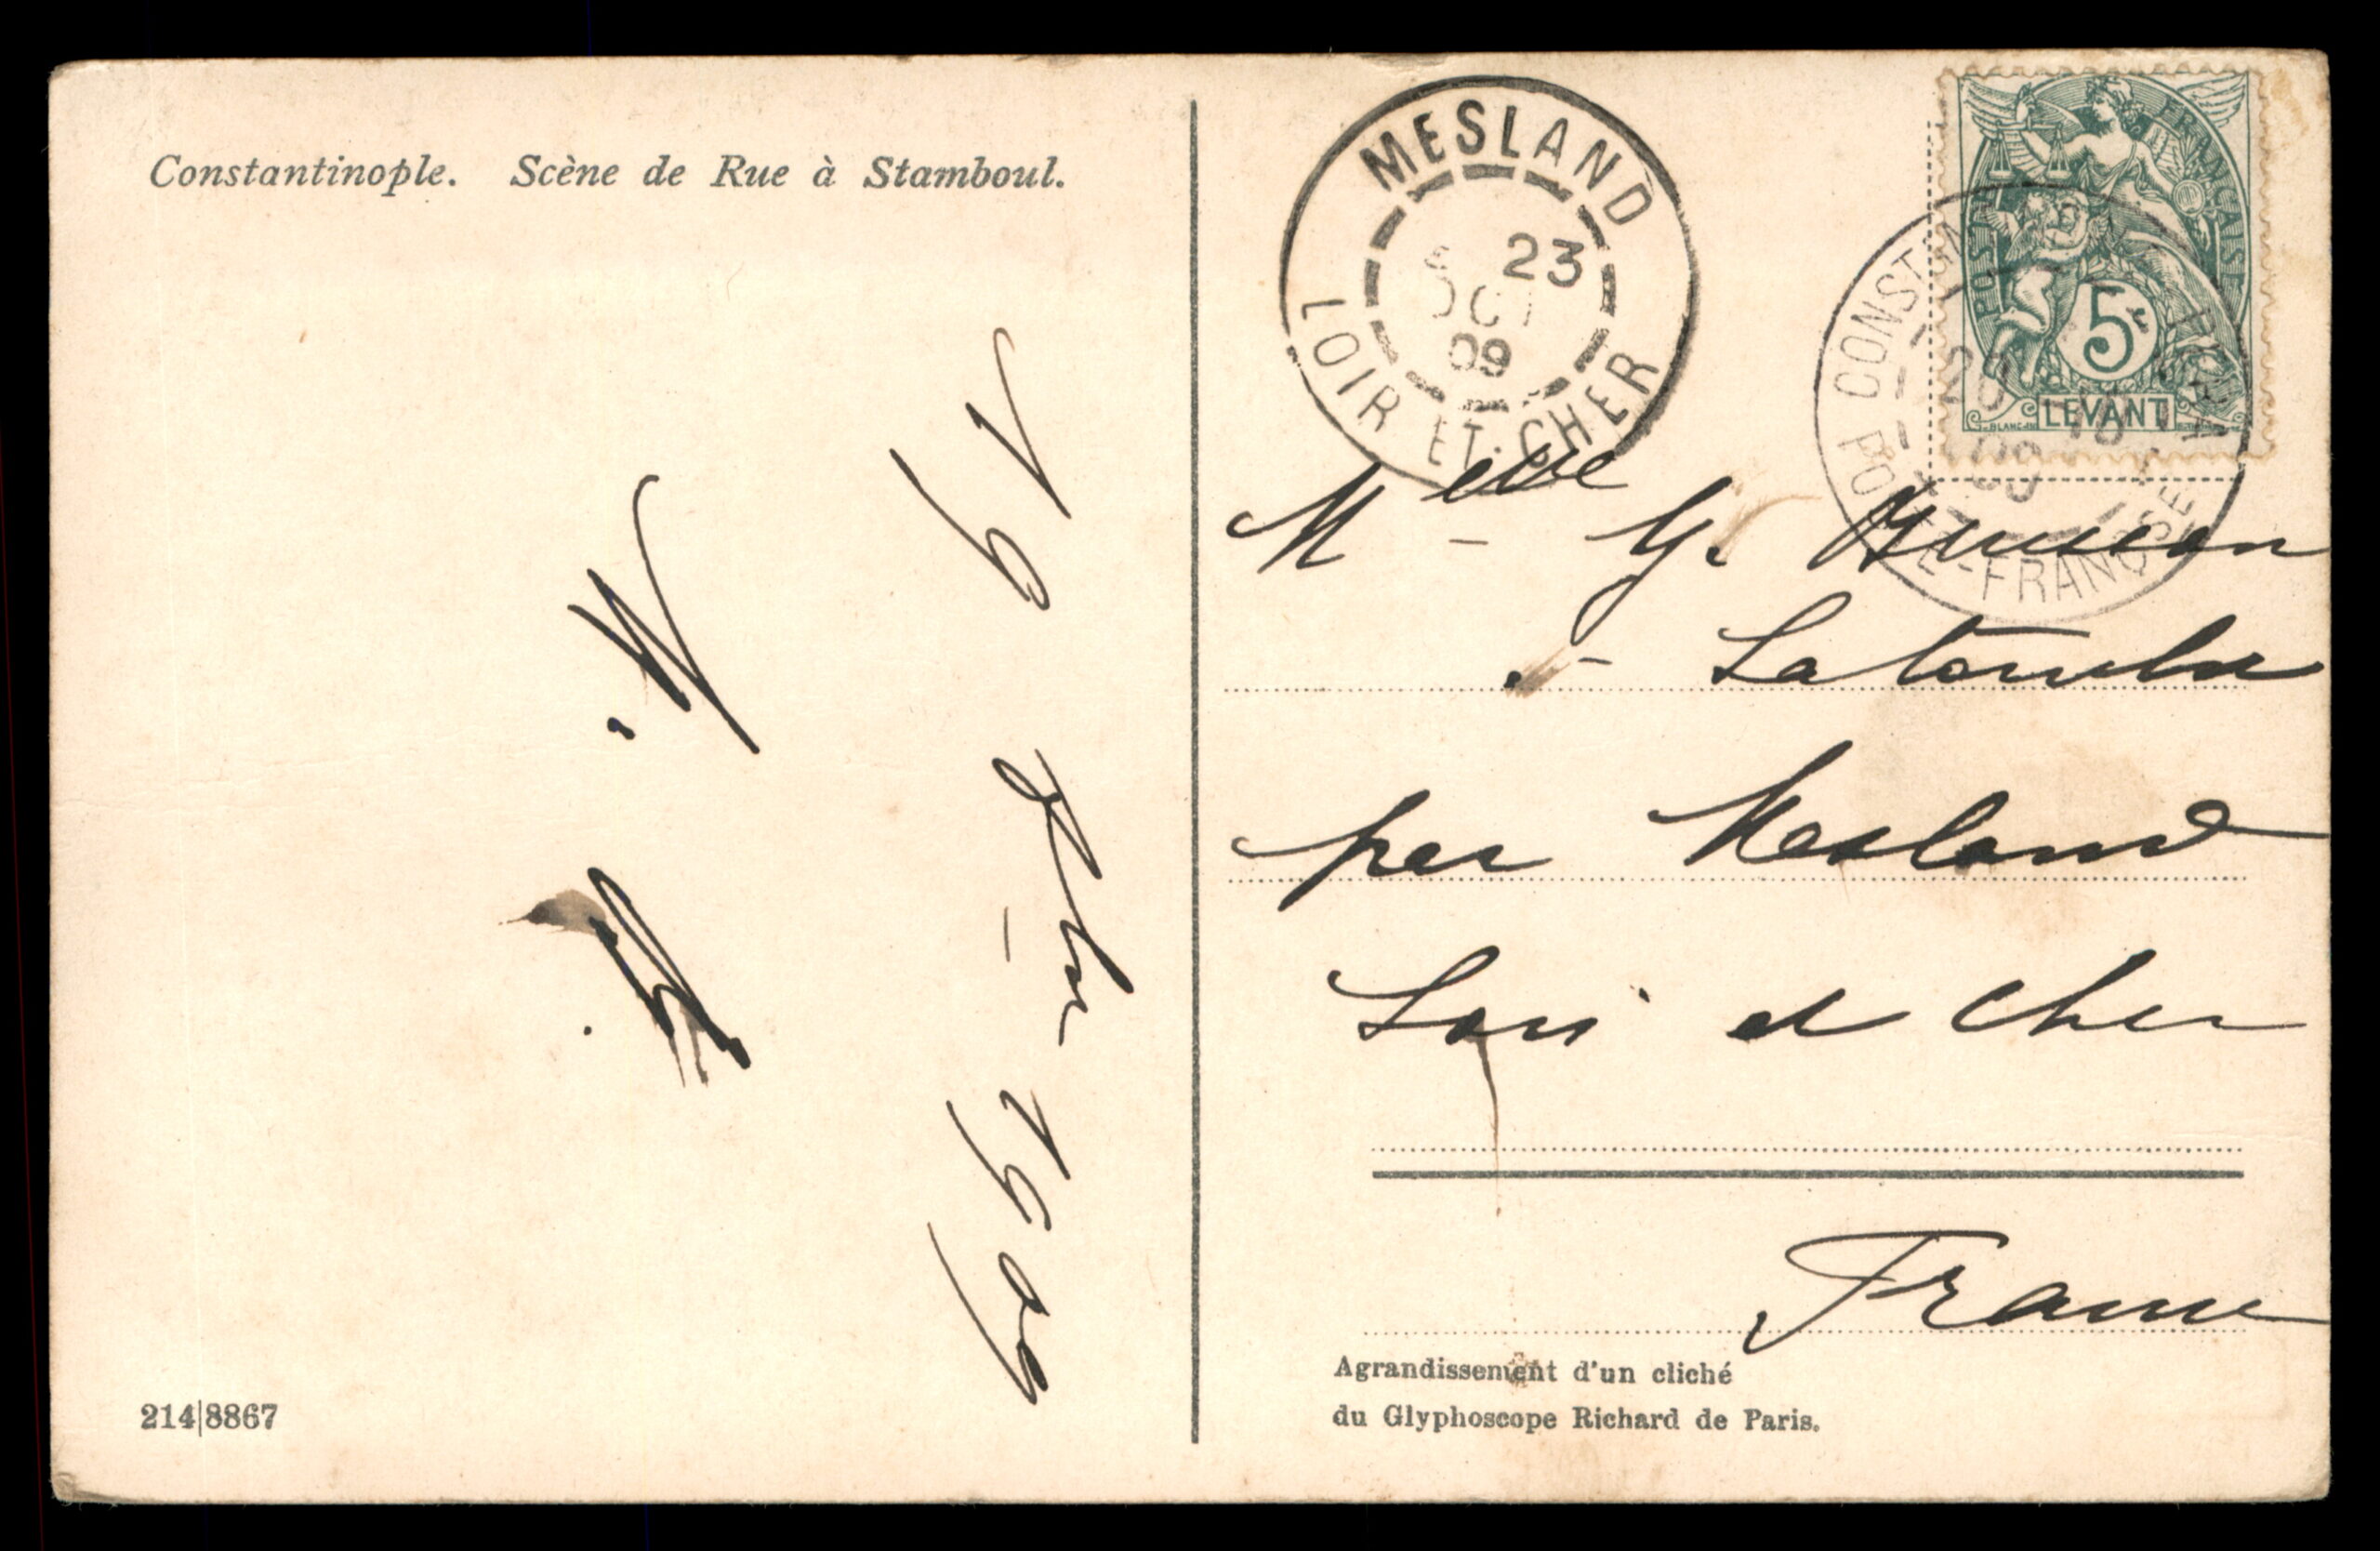 Constantinople. Scène de Rue à Stamboul.
19 8bre 1909
214|8867
MESLAND
23
OCT
09
LOIR ET CHER
POSTE FRANÇAISE
5c
LEVANT
CONSTANTINOPLE
POSTE-FRANÇAISE
20
09
Melle G.
Latombe
par Mesland
Loir et Cher
France
Agrandissement d'un cliché
du Glyphoscope Richard de Paris.